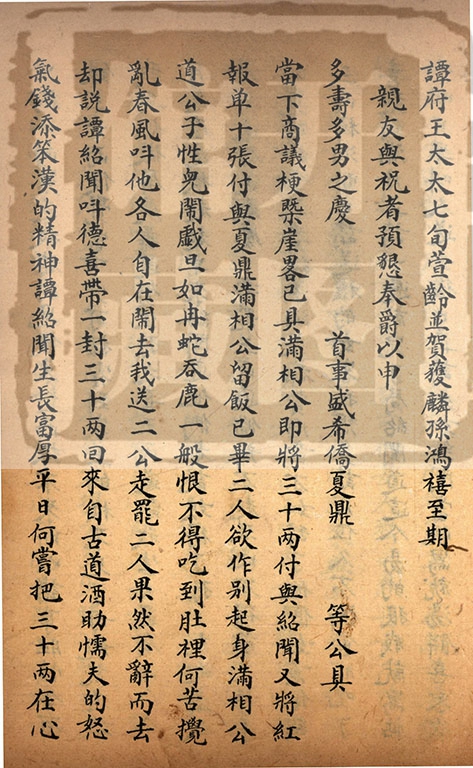 譚府王太太七旬萱齡並賀獲麟孫鴻禧至期
親友與祝者預懇奉爵以申
多壽多男之慶　首事盛希僑夏鼎　等公具
當下商議梗槩崖畧已具滿相公即將三十两付與紹聞又將紅
報单十張付與夏鼎滿相公留飯已畢二人欲作别起身滿相公
道公子性皃鬧戲旦如冉蛇吞鹿一般恨不得吃到肚裡何苦攪
亂春風呌他各人自在鬧去我送二公走罷二人果然不辭而去
却説譚紹聞呌德喜帶一封三十两回來自古道酒助懦夫的怒
氣錢添笨漢的精神譚紹聞生長富厚平日何嘗把三十两在心